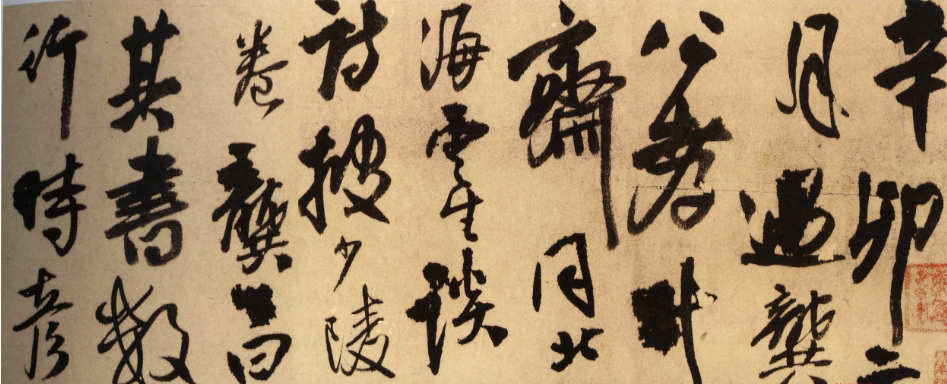 辛卯二
月過龔
公孝升
齋同北
海雲生談
詩少陵
卷龔曰
其書數
行時彥